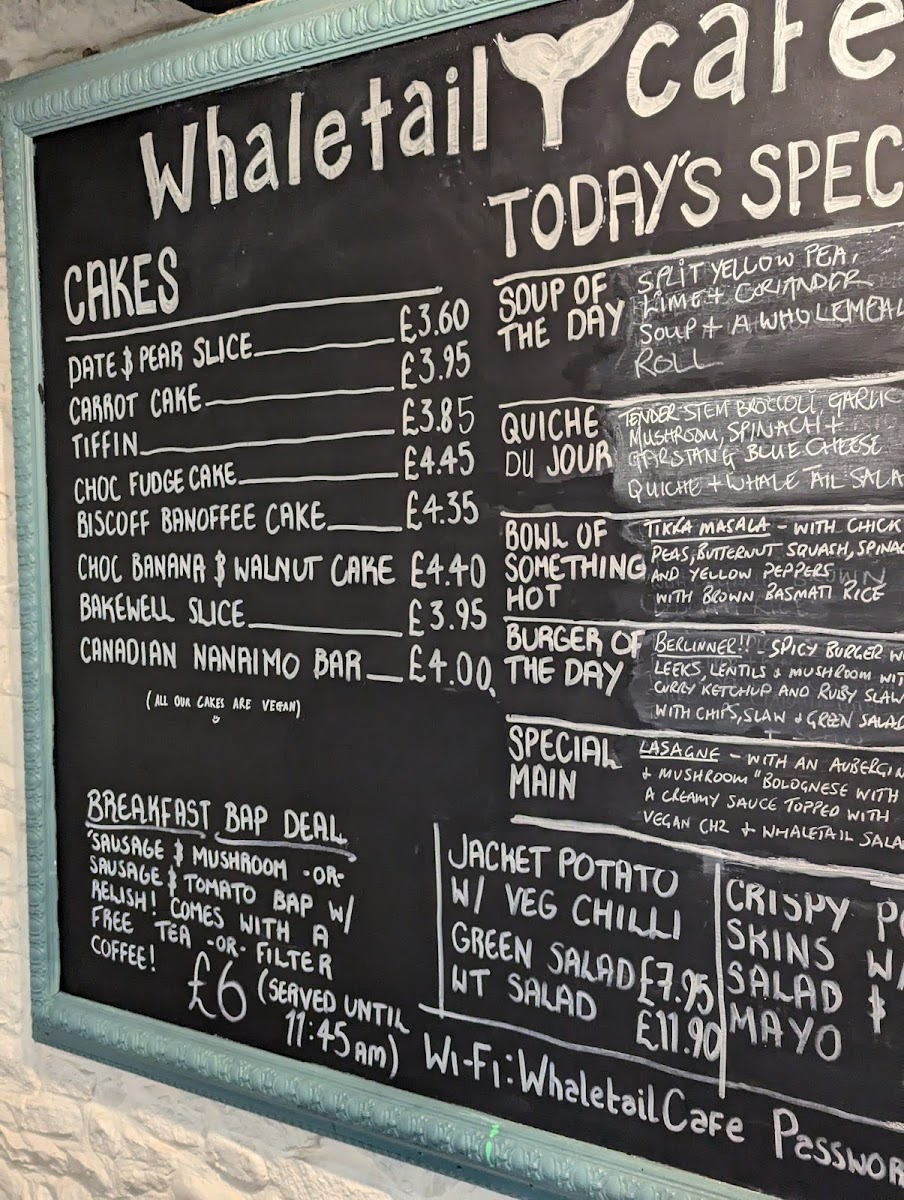 Whaletail cafe
CAKES
DATE & PEAR SLICE £3.60
CARROT CAKE £3.95
TIFFIN £3.85
CHOC FUDGE CAKE £4.45
BISCOFF BANOFFEE CAKE £4.35
CHOC BANANA & WALNUT CAKE £4.40
BAKEWELL SLICE £3.95
CANADIAN NANAIMO BAR £4.00
(ALL OUR CAKES ARE VEGAN)
BREAKFAST BAP DEAL
SAUSAGE & MUSHROOM -OR-
SAUSAGE & TOMATO BAP W/
RELISH! COMES WITH A
FREE TEA -OR- FILTER
COFFEE!
£6 (SERVED UNTIL
11:45AM)
TODAY'S SPEC
SOUP OF
THE DAY
SPLIT YELLOW PEA,
LIME + CORIANDER
SOUP + A WHOLEMEAL
ROLL
QUICHE
DU JOUR
TENDER STEM BROCCOLI, GARLIC
MUSHROOM, SPINACH +
GARSTANG BLUE CHEESE
QUICHE + WHALE TAIL SALA
BOWL OF
SOMETHING
HOT
TIKKA MASALA - WITH CHICK
PEAS, BUTTERNUT SQUASH, SPINAC
AND YELLOW PEPPERS
WITH BROWN BASMATI RICE
BURGER OF
THE DAY
BERLINNER!! - SPICY BURGER W
LEEKS, LENTILS & MUSHROOM WIT
CURRY KETCHUP AND RUBY SLAW
WITH CHIPS, SLAW & GREEN SALAD
SPECIAL
MAIN
LASAGNE - WITH AN AUBERGIN
+ MUSHROOM "BOLOGNESE WITH
A CREAMY SAUCE TOPPED WITH
VEGAN CHZ + WHALETAIL SALA
JACKET POTATO
W/ VEG CHILLI
GREEN SALAD £7.95
WT SALAD £11.90
CRISPY P
SKINS W/
SALAD &
MAYO
Wi-Fi: WhaletailCafe Passwor